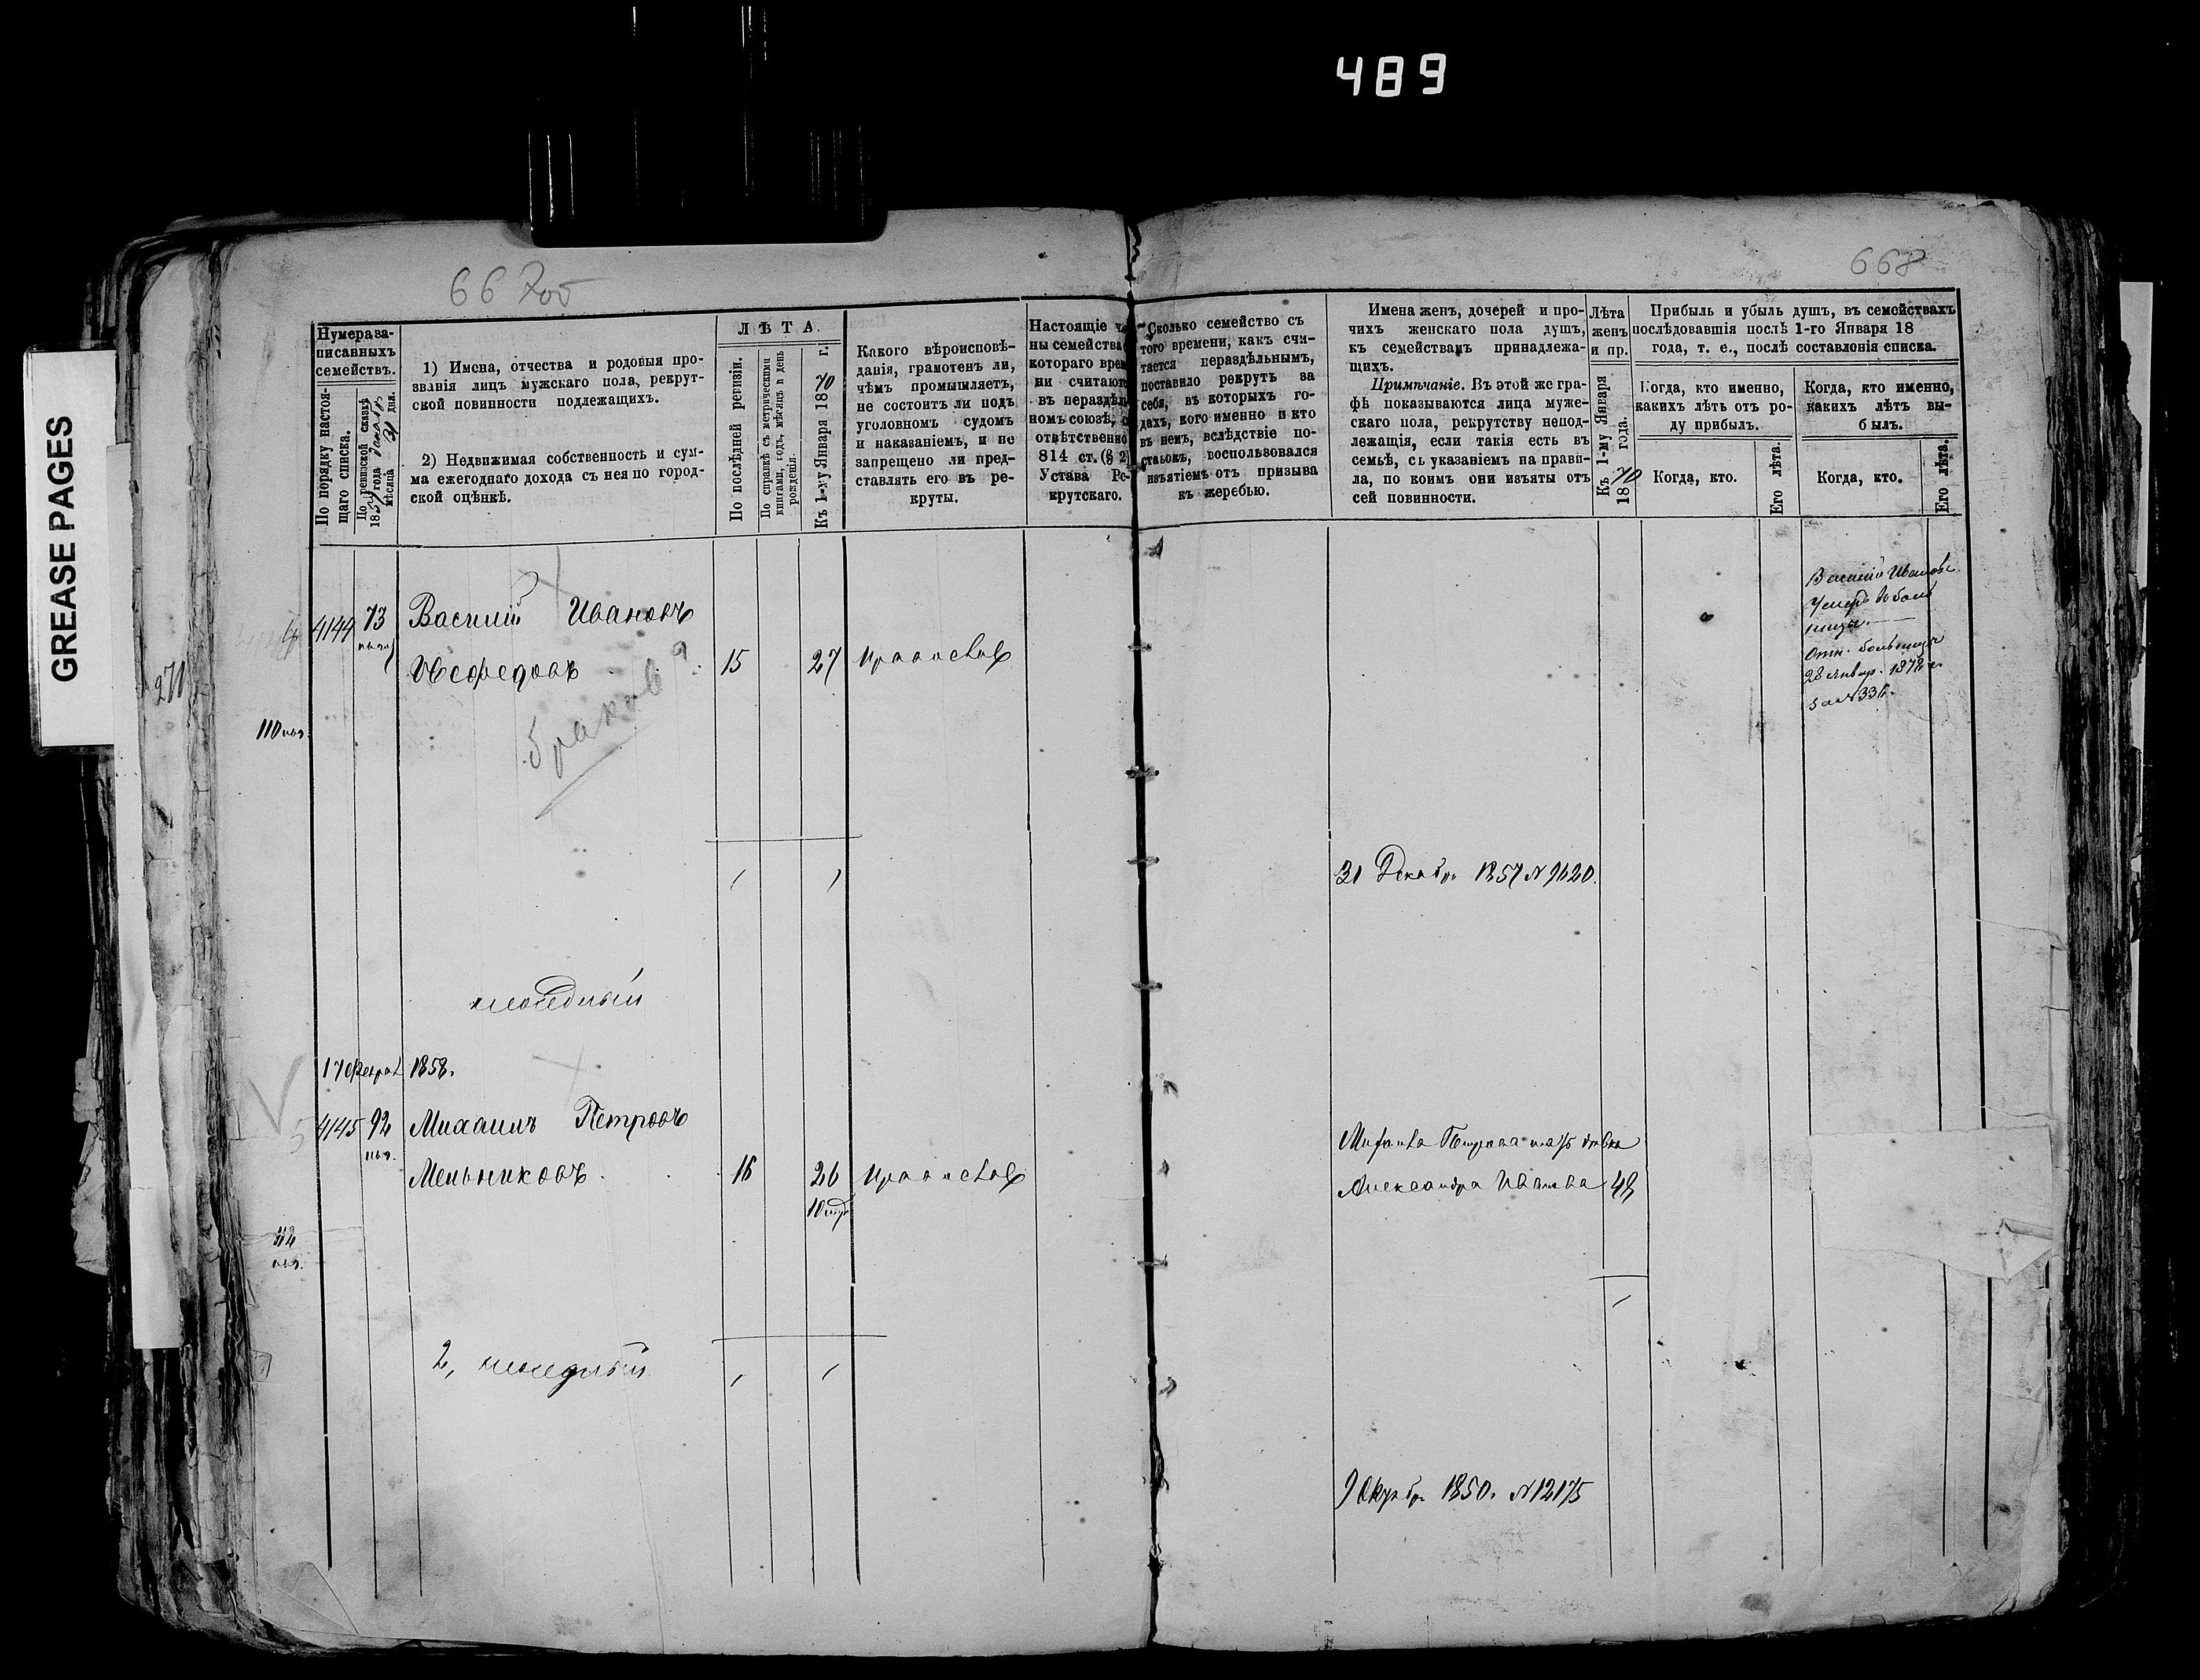 489
GREASE PAGES
667об
668
Нумера за-
писанныхъ
семействъ.
По порядку настоя-
щаго списка.
По ревизской сказкѣ
185 года
мѣсяца 31 дня.
1) Имена, отчества и родовыя про-
званія лицъ мужскаго пола, рекрут-
ской повинности подлежащихъ.
2) Недвижимая собственность и сум-
ма ежегоднаго дохода съ нея по город-
ской оцѣнкѣ.
ЛѢТА.
По послѣдней ревизіи.
По справкѣ съ метрическими
книгами, годъ, мѣсяцъ и день
рожденія.
Къ 1-му Января 1870 г.
Какого вѣроисповѣ-
данія, грамотенъ ли,
чѣмъ промышляетъ,
не состоитъ ли подъ
уголовнымъ судомъ
и наказаніемъ, и не
запрещено ли пред-
ставлять его въ ре-
круты.
Настоящіе ч
ны семейства
котораго врем
ни считают
въ нераздѣл
номъ союзѣ,
отвѣтственно
814 ст. (§ 2)
Устава Ре-
крутскаго.
Сколько семейство съ
того времени, какъ счи-
тается нераздѣльнымъ,
поставило рекрутъ за
себя, въ которыхъ го-
дахъ, кого именно и кто
въ немъ, вслѣдствіе по-
ставокъ, воспользовался
изъятіемъ отъ призыва
къ жеребью.
Имена женъ, дочерей и про-
чихъ женскаго пола душъ,
къ семействамъ принадлежа-
щихъ.
Примѣчаніе. Въ этой же гра-
фѣ показываются лица муже-
скаго пола, рекрутству непод-
лежащія, если такія есть въ
семьѣ, съ указаніемъ на прави-
ла, по коимъ они изъяты отъ
сей повинности.
Лѣта
женъ
и пр.
Къ 1-му Января
1870 года.
Прибыль и убыль душъ, въ семействахъ
послѣдовавшія послѣ 1-го Января 18
года, т. е., послѣ составленія списка.
Когда, кто именно,
какихъ лѣтъ отъ ро-
ду прибылъ.
Когда, кто именно,
какихъ лѣтъ вы-
былъ.
Когда, кто.
Его лѣта.
Когда, кто.
Его лѣта.
271
4144 73 Василій Ивановъ
Нефедовъ 15 27 Православ
Василій Ивановъ
Умеръ въ боль
ницѣ.
Отн. больницы
28 Январ. 1872 г.
за № 336.
110
браковъ
31 Декабр 1857 № 9620.
17 Феврал 1858.
4145 92 Михаилъ Петровъ
Мельниковъ. 16 26 Православ
Михаила Петрова мать вдова
Александра Иванова 49
112
2,
9 Октябр 1850. № 12175